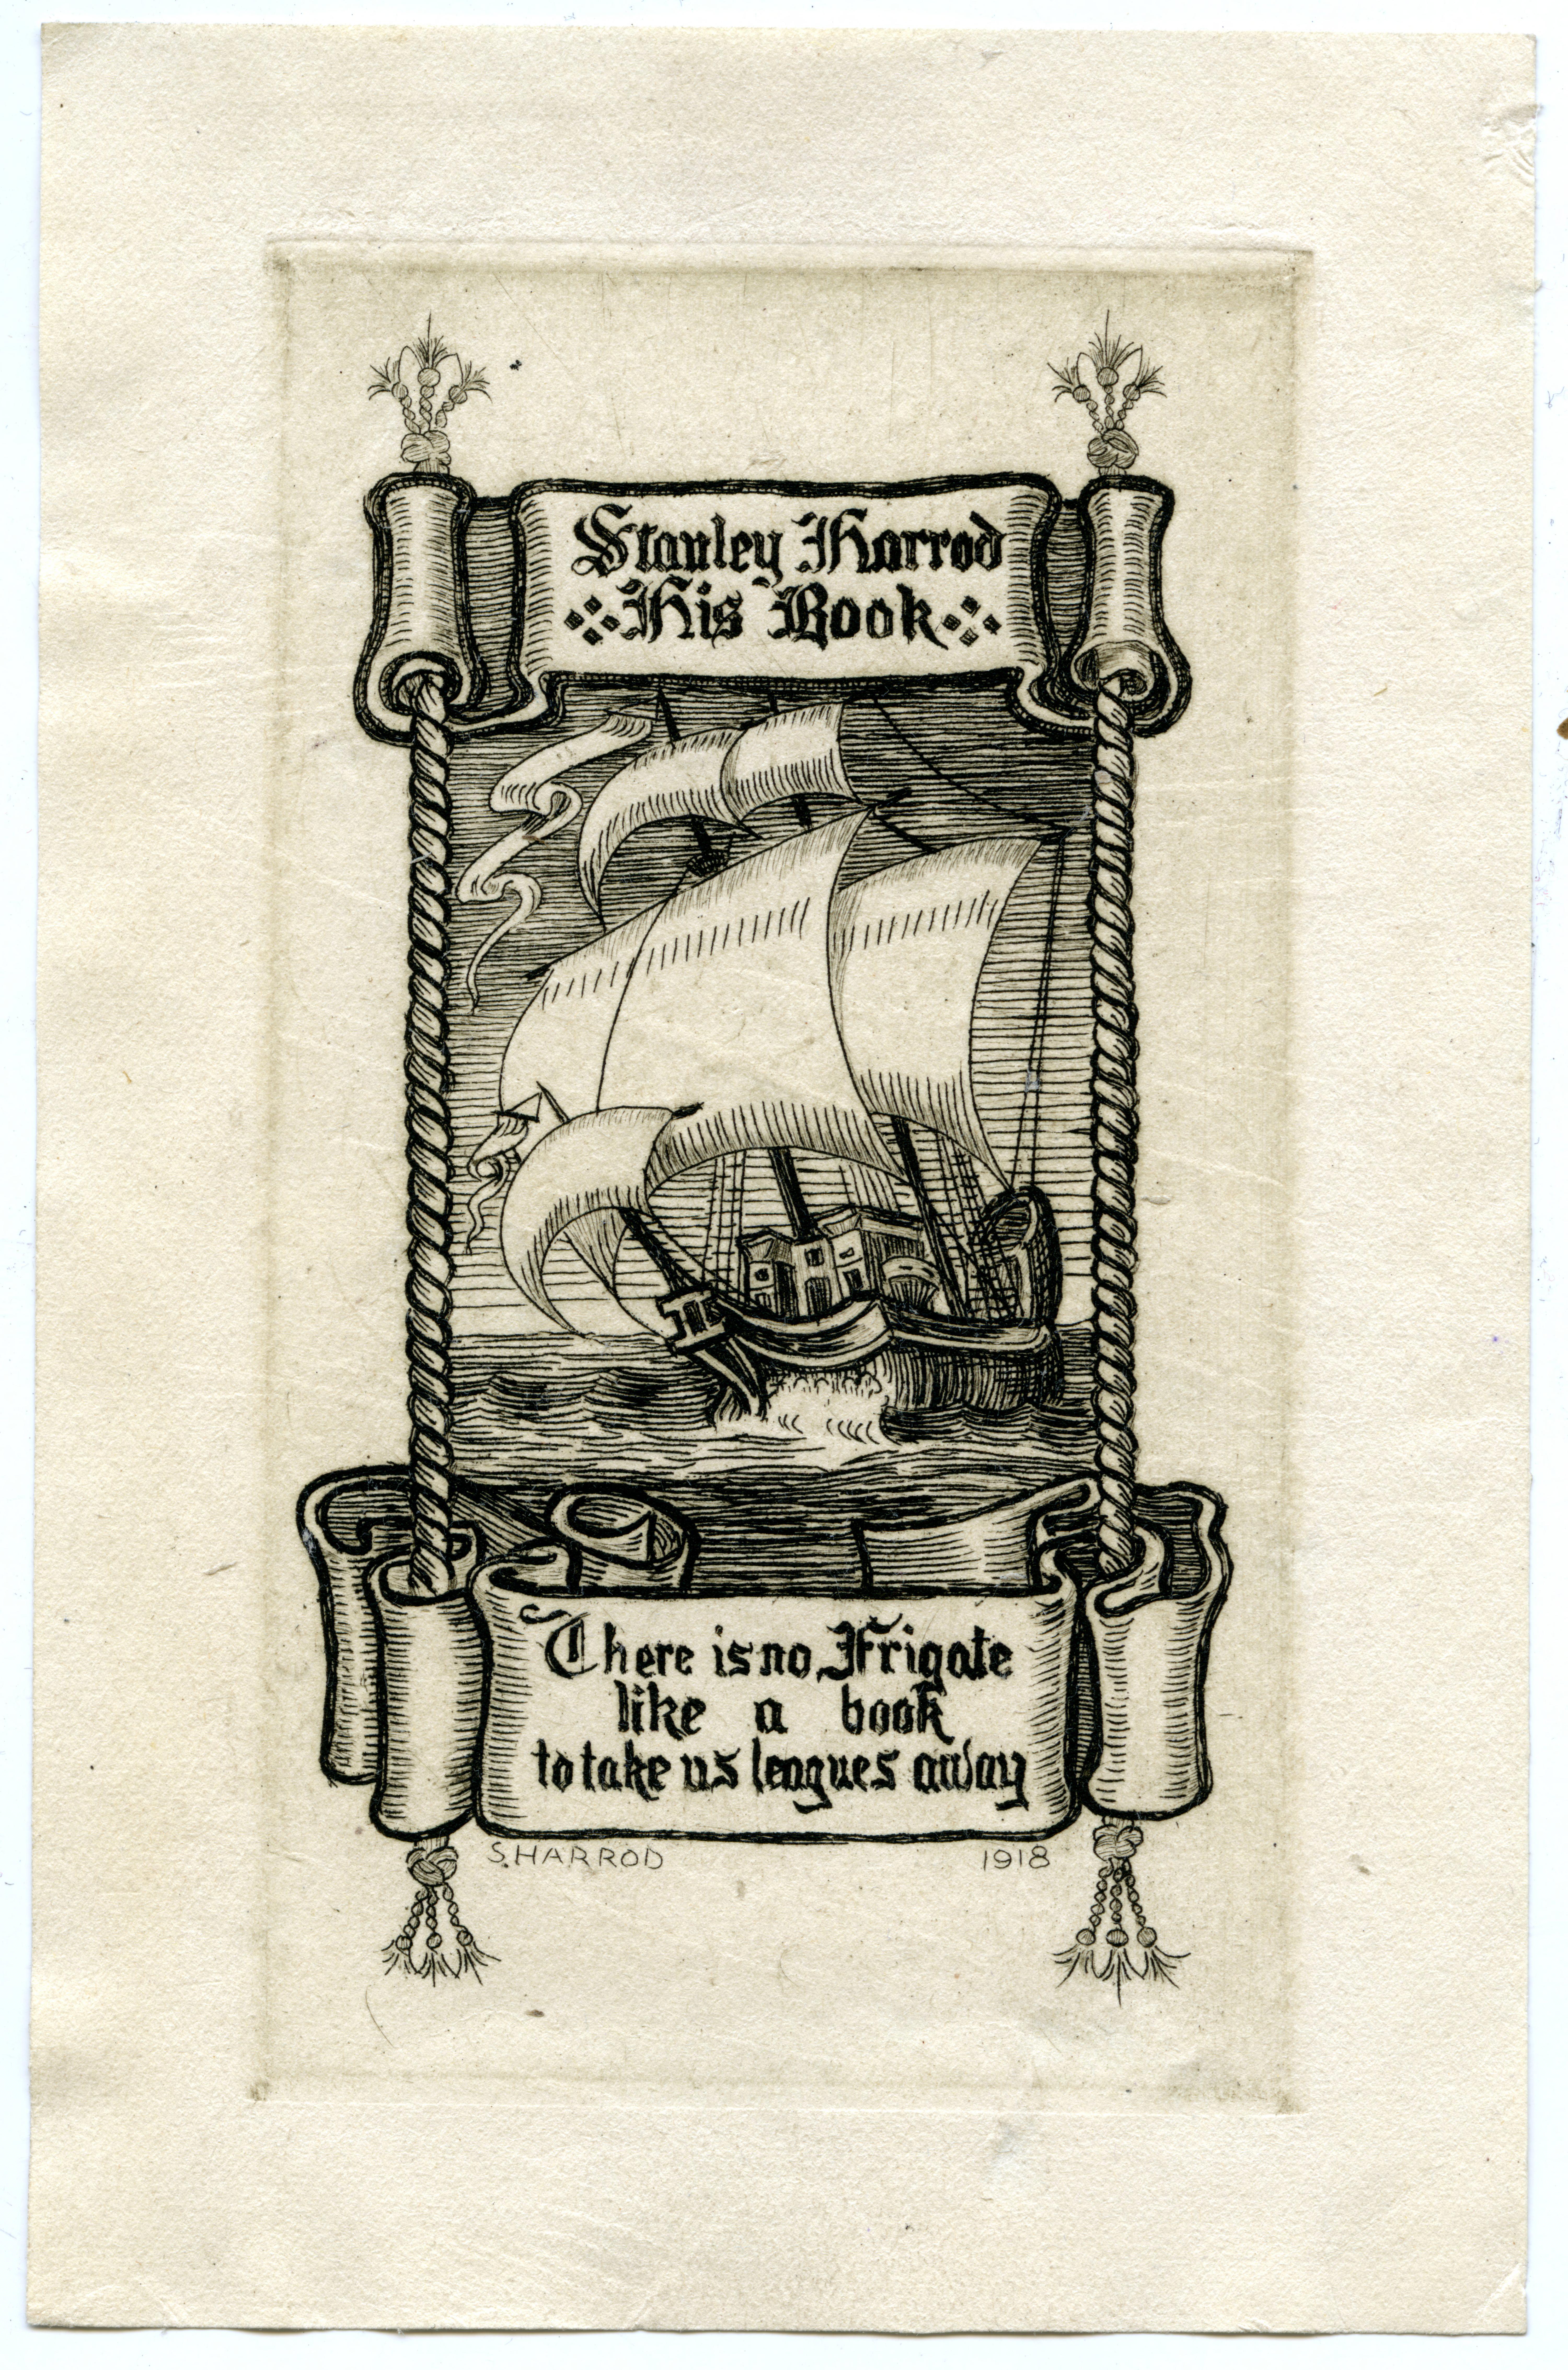 Stanley Harrod
His Book
There is no Frigate
like a book
to take us leagues away
S. HARROD 1918